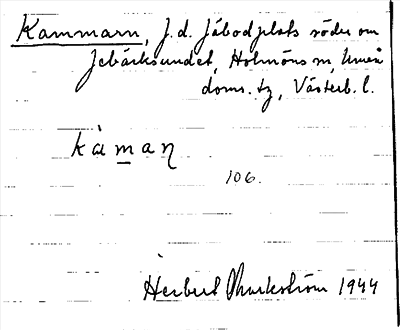 Kammarn, f.d. fäbodplats söder om
Jebäckssundet, Holmöns sn, Umeå
doms. tg, Västerb. l.
kàmaŋ
106.
Herbert Markström 1944